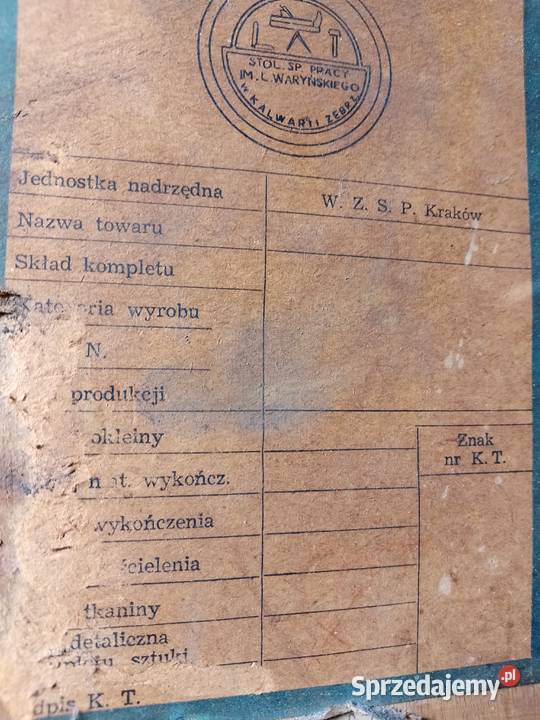 L T
STOL. SP. PRACY
IM. L. WARYŃSKIEGO
W KALWARII ZEBRZ.
Jednostka nadrzędna W. Z. S. P. Kraków
Nazwa towaru
Skład kompletu
Kategoria wyrobu
N.
produkcji
okleiny
Znak
nr K. T.
mat. wykończ.
wykończenia
ścielenia
tkaniny
detaliczna
sztuki
dpis K. T.
Sprzedajemy.pl